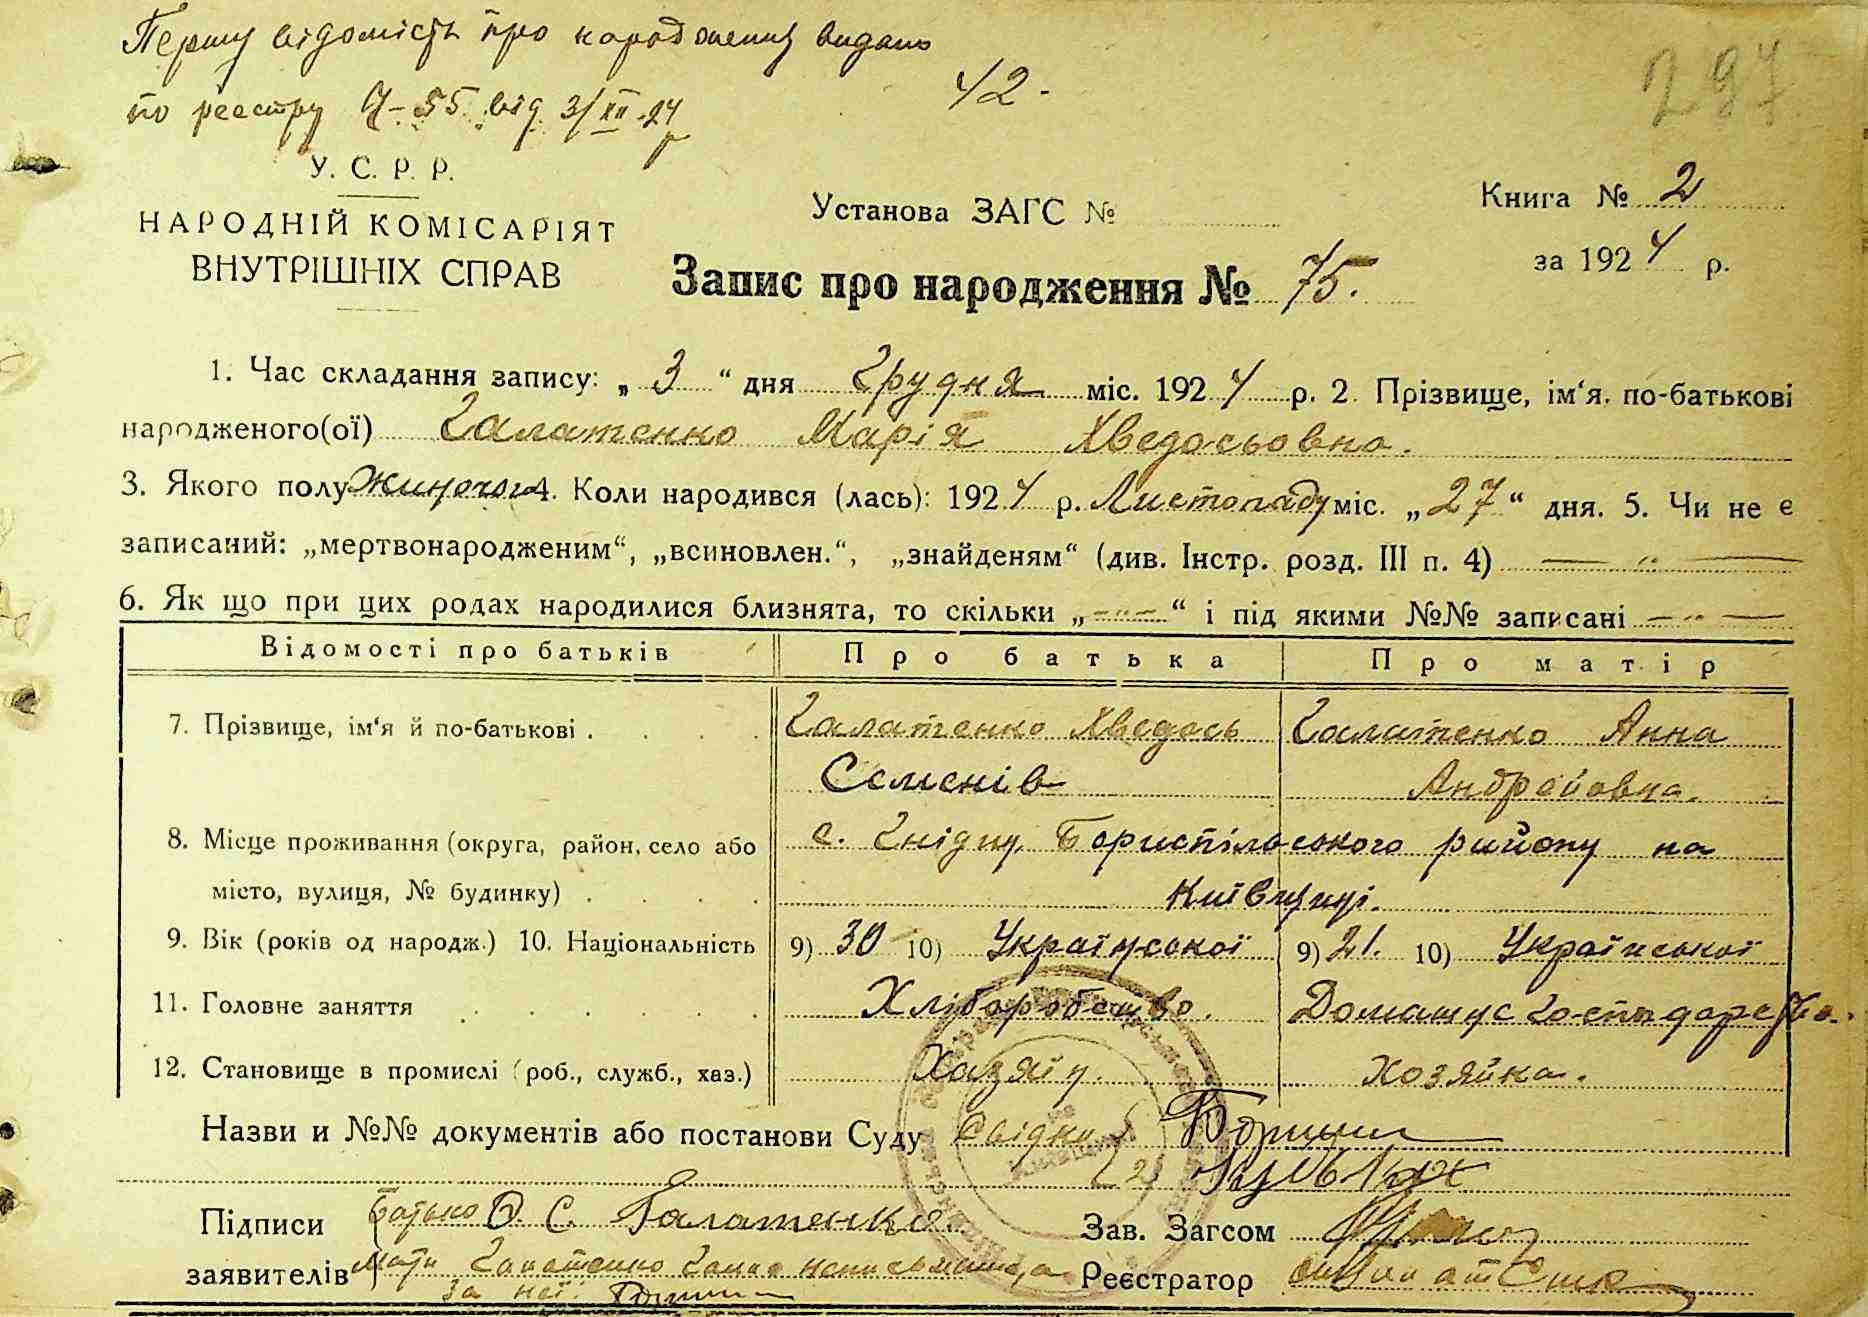 Першу відомість про народження видано
42.
297
по реєстру № 55 від 3/XII-24 р
У. С. Р. Р.
НАРОДНІЙ КОМІСАРІЯТ
ВНУТРІШНІХ СПРАВ
Установа ЗАГС №
Книга № 2
за 1924 р.
Запис про народження № 75.
1. Час складання запису: „ 3 “ дня Грудня міс. 1924 р. 2. Прізвище, ім‘я, по-батькові
народженого(ої) Галатенко Марія Хведосьовна.
3. Якого полу Жиночого 4. Коли народився (лась): 1924 р. Листопаду міс. „27“ дня. 5. Чи не є
записаний: „мертвонародженим“, „всиновлен.“, „знайденям“ (див. Інстр. розд. III п. 4) — „ —
6. Як що при цих родах народилися близнята, то скільки „-„-“ і під якими №№ записані — „ —
Відомості про батьків Про батька Про матір
7. Прізвище, ім‘я й по-батькові . . . . Галатенко Хведось Галатенко Анна
Семенів Андрейовна.
8. Місце проживання (округа, район, село або с. Гнідин, Бориспільського району на
місто, вулиця, № будинку) . . . . Київщині.
9. Вік (років од народж.) 10. Національність 9) 30 10) Української 9) 21. 10) Української
11. Головне заняття . . . . . . Хліборобство. Домашнє Господарство.
12. Становище в промислі (роб., служб., хаз.) Хазяїн. Хозяйка.
Назви и №№ документів або постанови Суду Свідки
Підписи Батько Ф. С. Галатенко. Зав. Загсом
заявителів Мати Галатенко Ганна неписьменна, а Реєстратор
за неї: